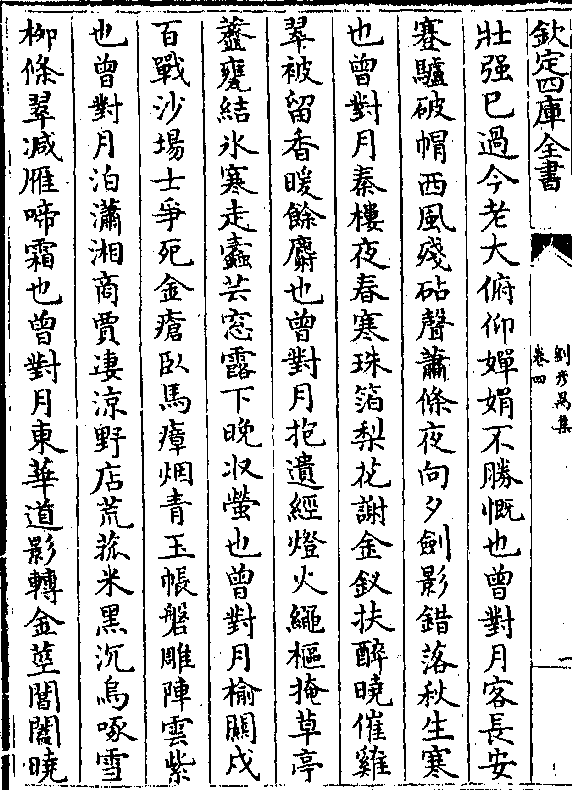 欽定四庫全書
劉彥昺集
卷四
壯强已過今老大俯仰嬋娟不勝慨也曾對月客長安
蹇驢破帽西風殘砧聲蕭條夜向夕劍影錯落秋生寒
也曾對月秦樓夜春寒珠箔梨花謝金釵扶醉曉催雞
翠被留香暖餘麝也曾對月抱遺經燈火繩樞掩草亭
虀甕結氷寒走蠹芸窓露下晚收螢也曾對月榆關戍
百戰沙場士爭死金瘡臥馬瘴烟青玉帳盤雕陣雲紫
也曾對月泊瀟湘商賈淒涼野店荒菰米黑沉烏啄雪
柳條翠减雁啼霜也曾對月東華道影轉金莖閶闔曉